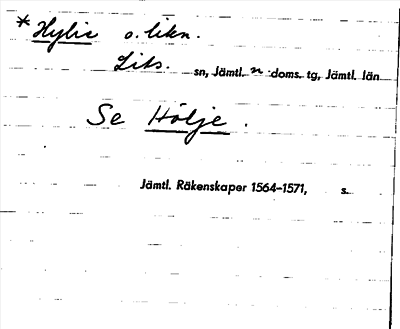 * Hylie o. likn.
Lits. sn, Jämtl. n doms. tg, Jämtl. län
Se Hölje.
Jämtl. Räkenskaper 1564-1571, s.